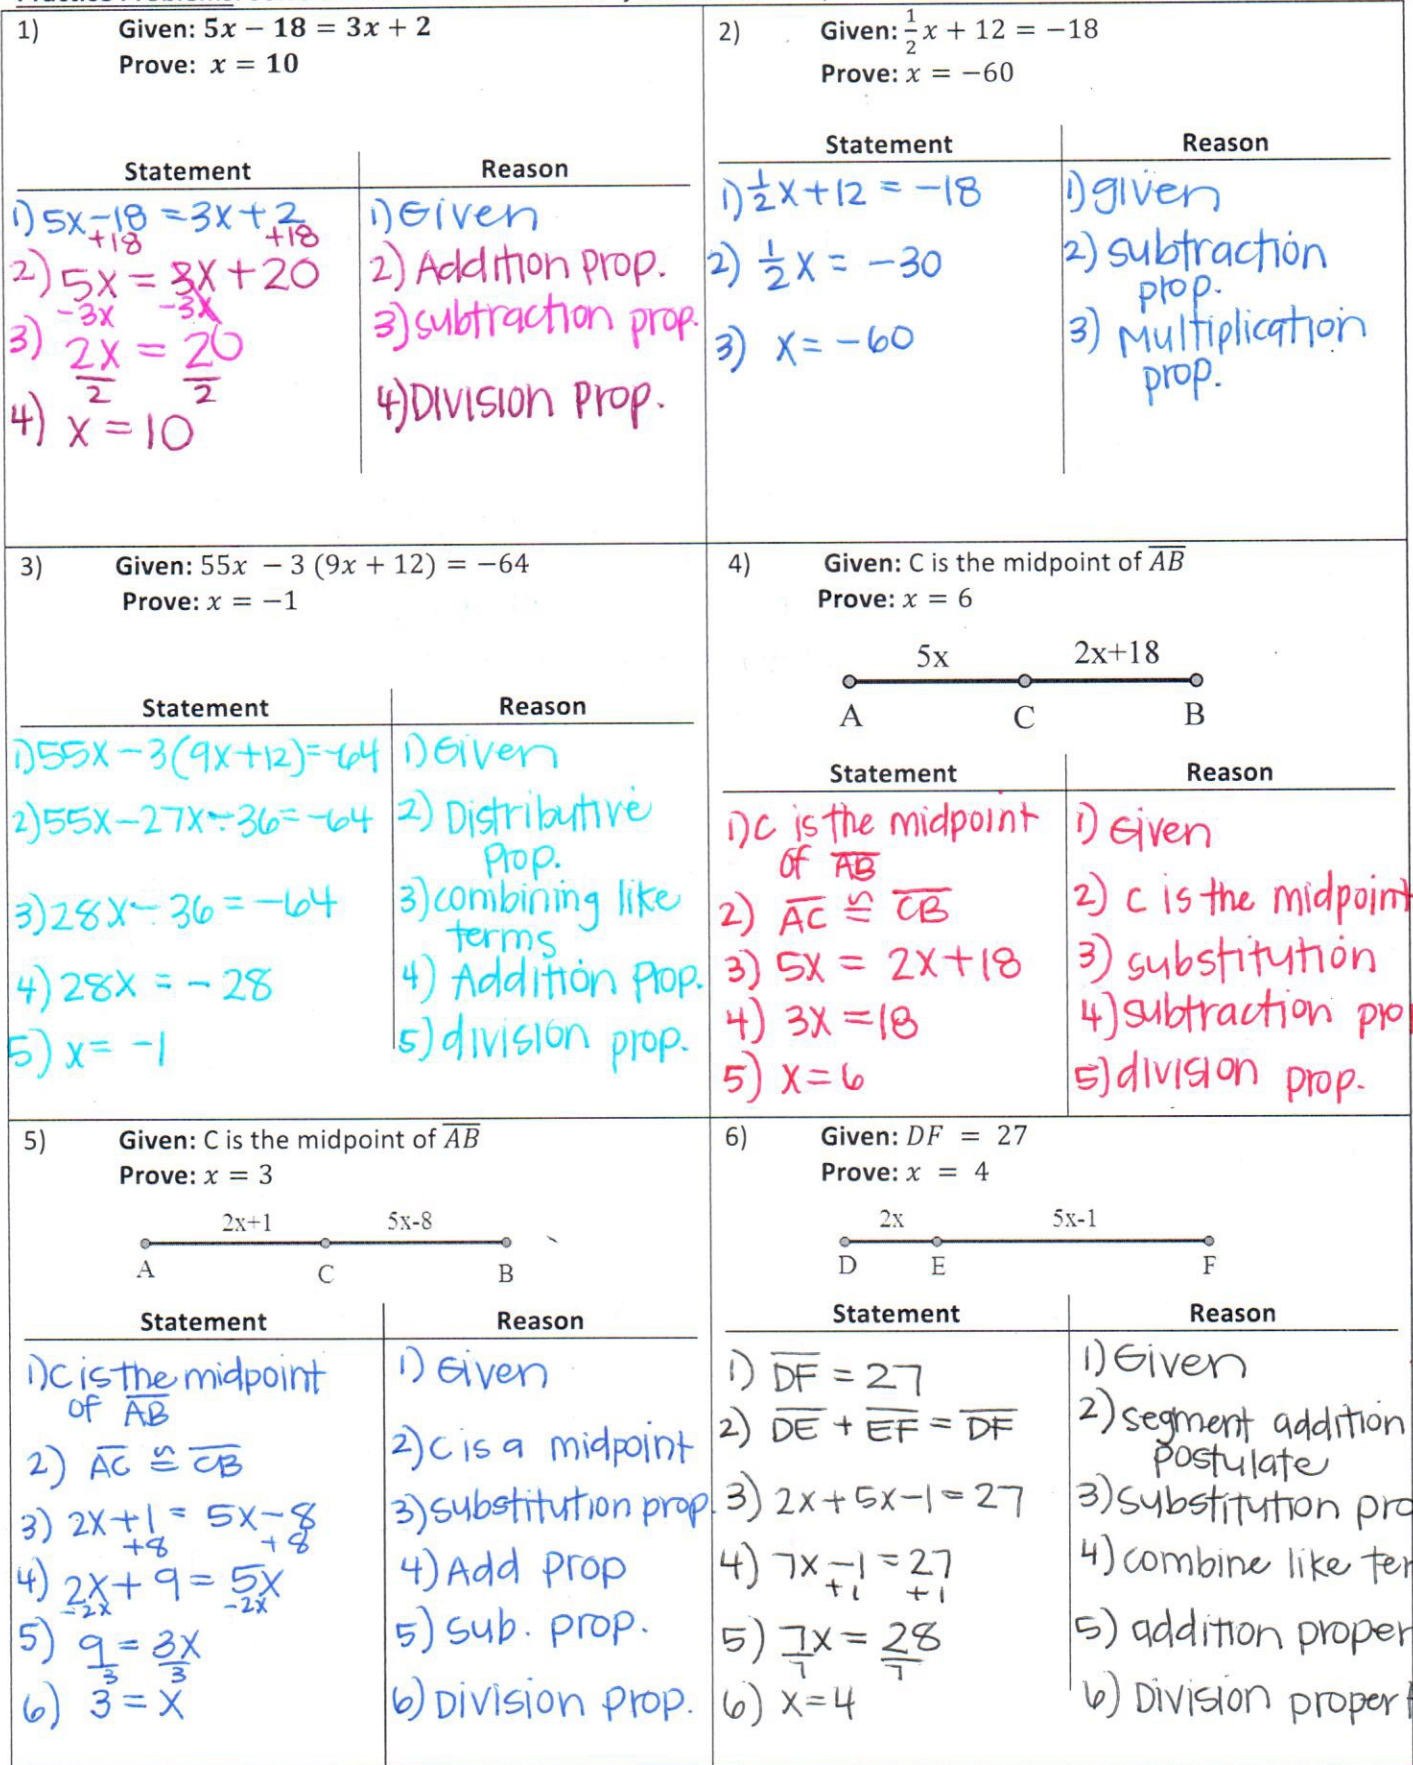 1) Given: 5x − 18 = 3x + 2
Prove: x = 10
Statement Reason
1) 5x−18 = 3x+2 1) Given
+18 +18
2) 5x = 3x+20 2) Addition Prop.
−3x −3x
3) 2x = 20 3) subtraction prop.
2 2
4) x = 10 4) Division Prop.
2) Given: 1/2 x + 12 = −18
Prove: x = −60
Statement Reason
1) 1/2 x+12 = −18 1) given
2) 1/2 x = −30 2) subtraction
prop.
3) x = −60 3) Multiplication
prop.
3) Given: 55x − 3 (9x + 12) = −64
Prove: x = −1
Statement Reason
1) 55x−3(9x+12)=−64 1) Given
2) 55x−27x−36=−64 2) Distributive
Prop.
3) 28x−36 = −64 3) combining like
terms
4) 28x = −28 4) Addition Prop.
5) x = −1 5) division prop.
4) Given: C is the midpoint of AB
Prove: x = 6
5x 2x+18
A C B
Statement Reason
1) C is the midpoint 1) Given
of AB
2) AC ≅ CB 2) C is the midpoint
3) 5x = 2x+18 3) substitution
4) 3x = 18 4) subtraction pro
5) x = 6 5) division prop.
5) Given: C is the midpoint of AB
Prove: x = 3
2x+1 5x-8
A C B
Statement Reason
1) C is the midpoint 1) Given
of AB
2) AC ≅ CB 2) C is a midpoint
3) 2x+1 = 5x−8 3) substitution prop.
+8 +8
4) 2x+9 = 5x 4) Add Prop
−2x −2x
5) 9 = 3x 5) sub. prop.
3 3
6) 3 = x 6) Division prop.
6) Given: DF = 27
Prove: x = 4
2x 5x-1
D E F
Statement Reason
1) DF = 27 1) Given
2) DE + EF = DF 2) segment addition
postulate
3) 2x+5x−1=27 3) substitution pro
4) 7x−1 = 27 4) combine like ter
+1 +1
5) 7x = 28 5) addition proper
7 7
6) x=4 6) Division propert